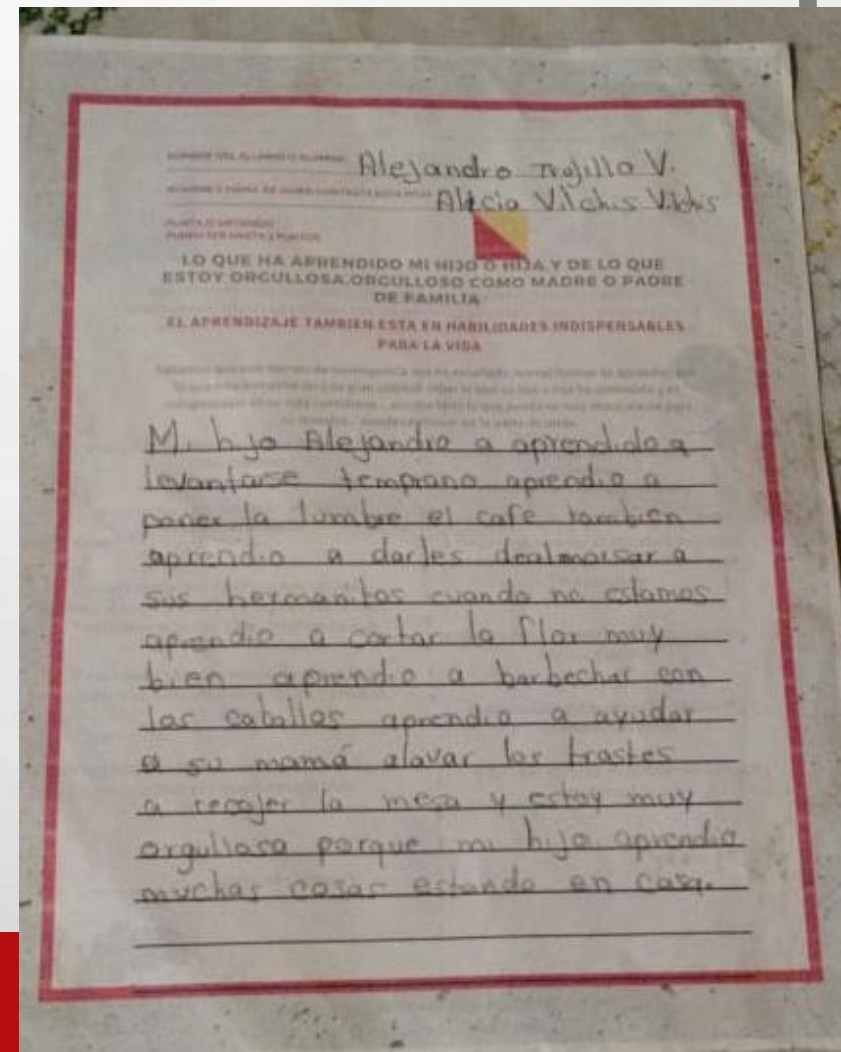 NOMBRE DEL ALUMNO O ALUMNA: Alejandro Trujillo V.
NOMBRE Y FIRMA DE QUIEN CONTESTA ESTA HOJA Alicia Vilchis Vilchis
PUNTAJE OBTENIDO
PUEDE SER HASTA 2 PUNTOS
LO QUE HA APRENDIDO MI HIJO O HIJA Y DE LO QUE
ESTOY ORGULLOSA,ORGULLOSO COMO MADRE O PADRE
DE FAMILIA
EL APRENDIZAJE TAMBIEN ESTA EN HABILIDADES INDISPENSABLES
PARA LA VIDA
Mi hijo Alejandro a aprendido a
levantarse temprano aprendio a
poner la lumbre el cafe tambien
aprendio a darles dealmorsar a
sus hermanitos cuando no estamos
aprendio a cortar la flor muy
bien aprendio a barbechar con
los caballos aprendio a ayudar
a su mamá alavar los trastes
a recojer la mesa y estoy muy
orgullosa porque mi hijo aprendio
muchas cosas estando en casa.